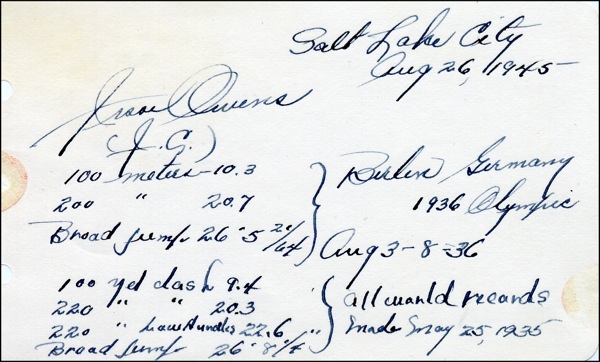 Salt Lake City
Aug 26, 1945
Jesse Owens
(J.C.)
100 meters - 10.3
200 " 20.7
Broad Jump 26' 5 21/64
Berlin Germany
1936 Olympic
Aug 3-8-36
100 yd dash 9.4
220 " " 20.3
220 " Low Hurdles 22.6
Broad Jump 26' 8 1/4"
all world records
made May 25, 1935